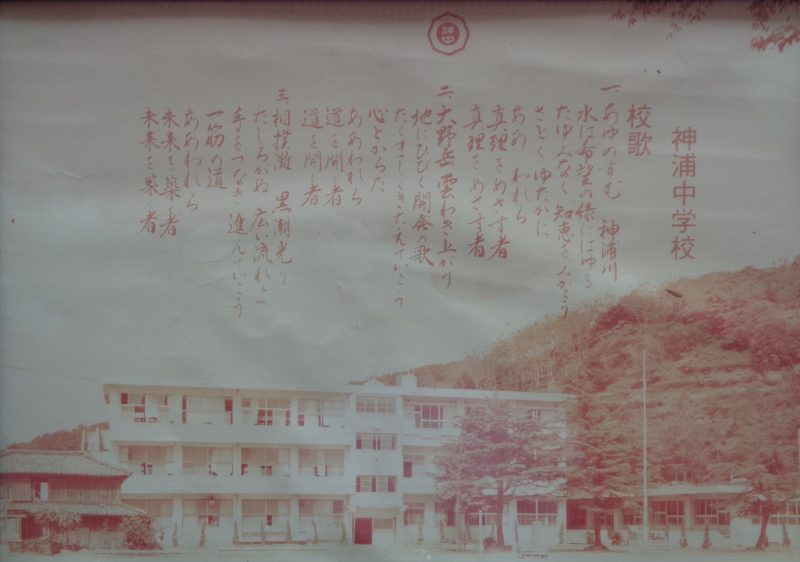 神中
神浦中学校
校歌
一、あゆのすむ 神浦川
水は希望の緑にはゆる
たゆみなく 知恵をみがこう
さとく ゆたかに
ああ われら
真理をめざす者
真理をめざす者
二、大野岳 雲わき上がり
地にひびく 開発の歌
たくましくきたえていこう
心とからだ
ああわれら
道を開く者
道を開く者
三、相撲灘 黒潮光り
たじろがぬ 広い流れよ
手をつなぎ 進んでいこう
一筋の道
ああわれら
未来を築く者
未来を築く者